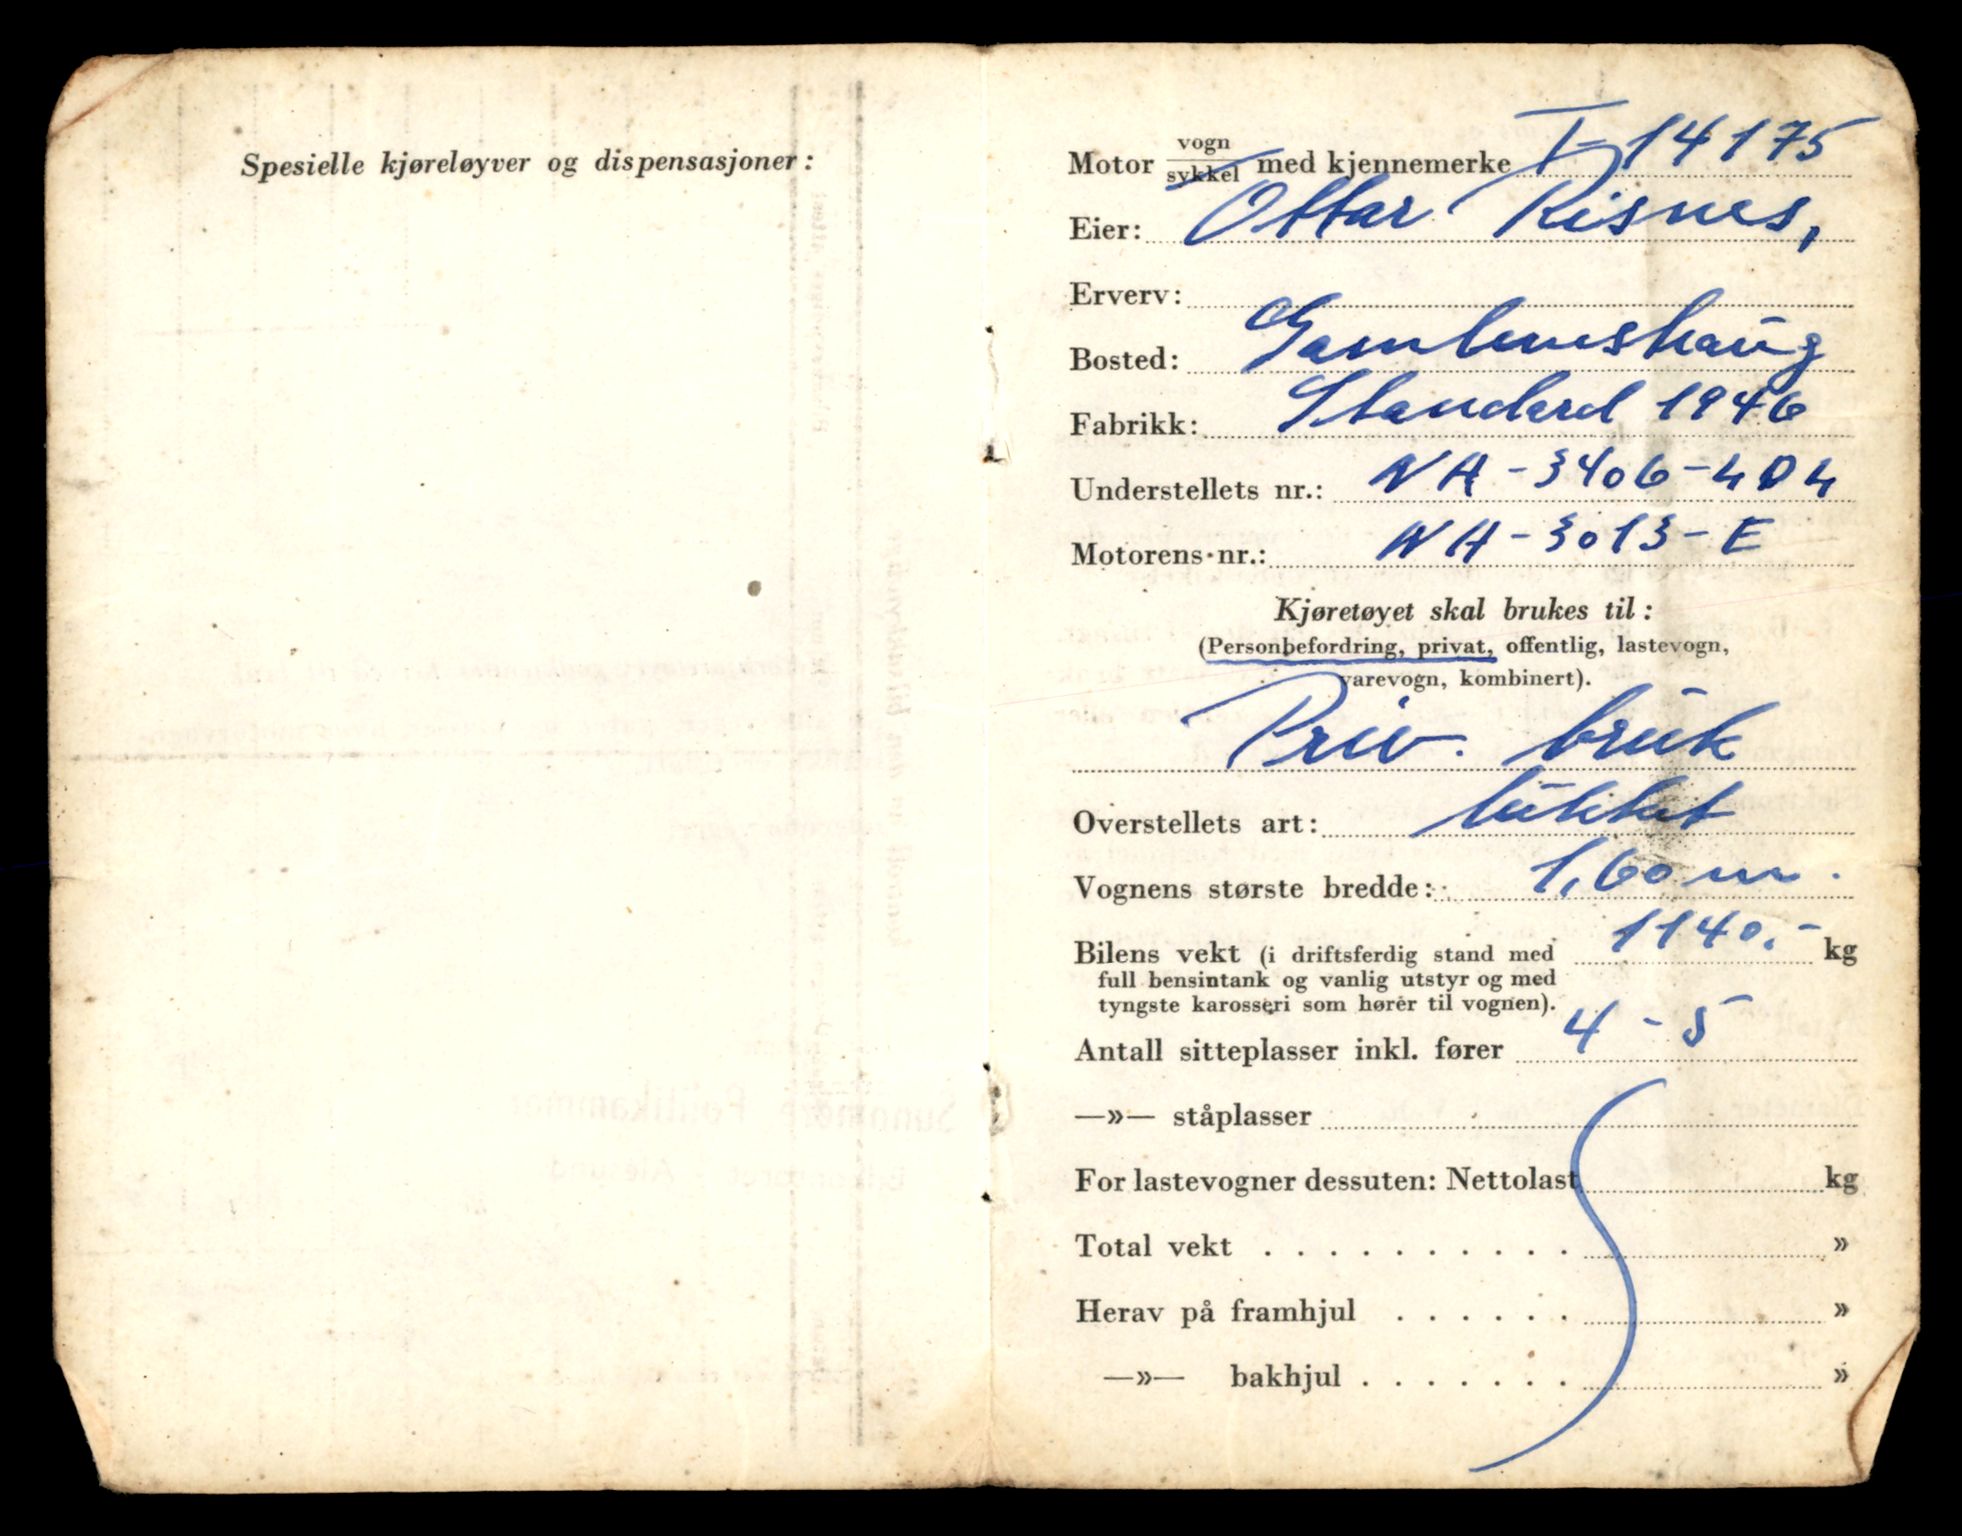 Spesielle kjøreløyver og dispensasjoner:
Motor vogn/sykkel med kjennemerke T-14175
Eier: Ottar Risnes,
Erverv:
Bosted: Gamlemshaug
Fabrikk: Standard 1946
Understellets nr.: NA-3406-4D4
Motorens nr.: NA-3013-E
Kjøretøyet skal brukes til:
(Personbefordring, privat, offentlig, lastevogn,
varevogn, kombinert).
Priv. bruk
Overstellets art: lukket
Vognens største bredde: 1,60 m.
Bilens vekt (i driftsferdig stand med 1140,- kg
full bensintank og vanlig utstyr og med
tyngste karosseri som hører til vognen).
Antall sitteplasser inkl. fører 4 - 5
—»— ståplasser
For lastevogner dessuten: Nettolast kg
Total vekt . . . . . . . . . . »
Herav på framhjul . . . . . . »
—»— bakhjul . . . . . . . »